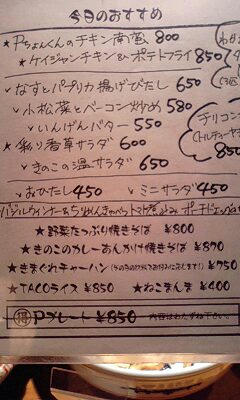 今日のおすすめ
★Pちょんくんのチキン南蛮 800
★ケイジャンチキン&ポテトフライ 850
✓なすとパプリカ揚げびたし 650
✓小松菜とベーコン炒め 580
✓いんげんバター 550
★彩り香草サラダ 600
✓きのこの温サラダ 650
✓おひたし 450 ✓ミニサラダ 450
バジルウィンナー&ちりめんキャベツトマト煮込み
★野菜たっぷり焼きそば ¥800
★きのこのカレーあんかけ焼きそば ¥870
★きまぐれチャーハン ¥750
★TACOライス ¥850 ★ねこまんま ¥400
得 Pプレート ¥850 内容はおたずね下さい。
チリコン
(トルティーヤ